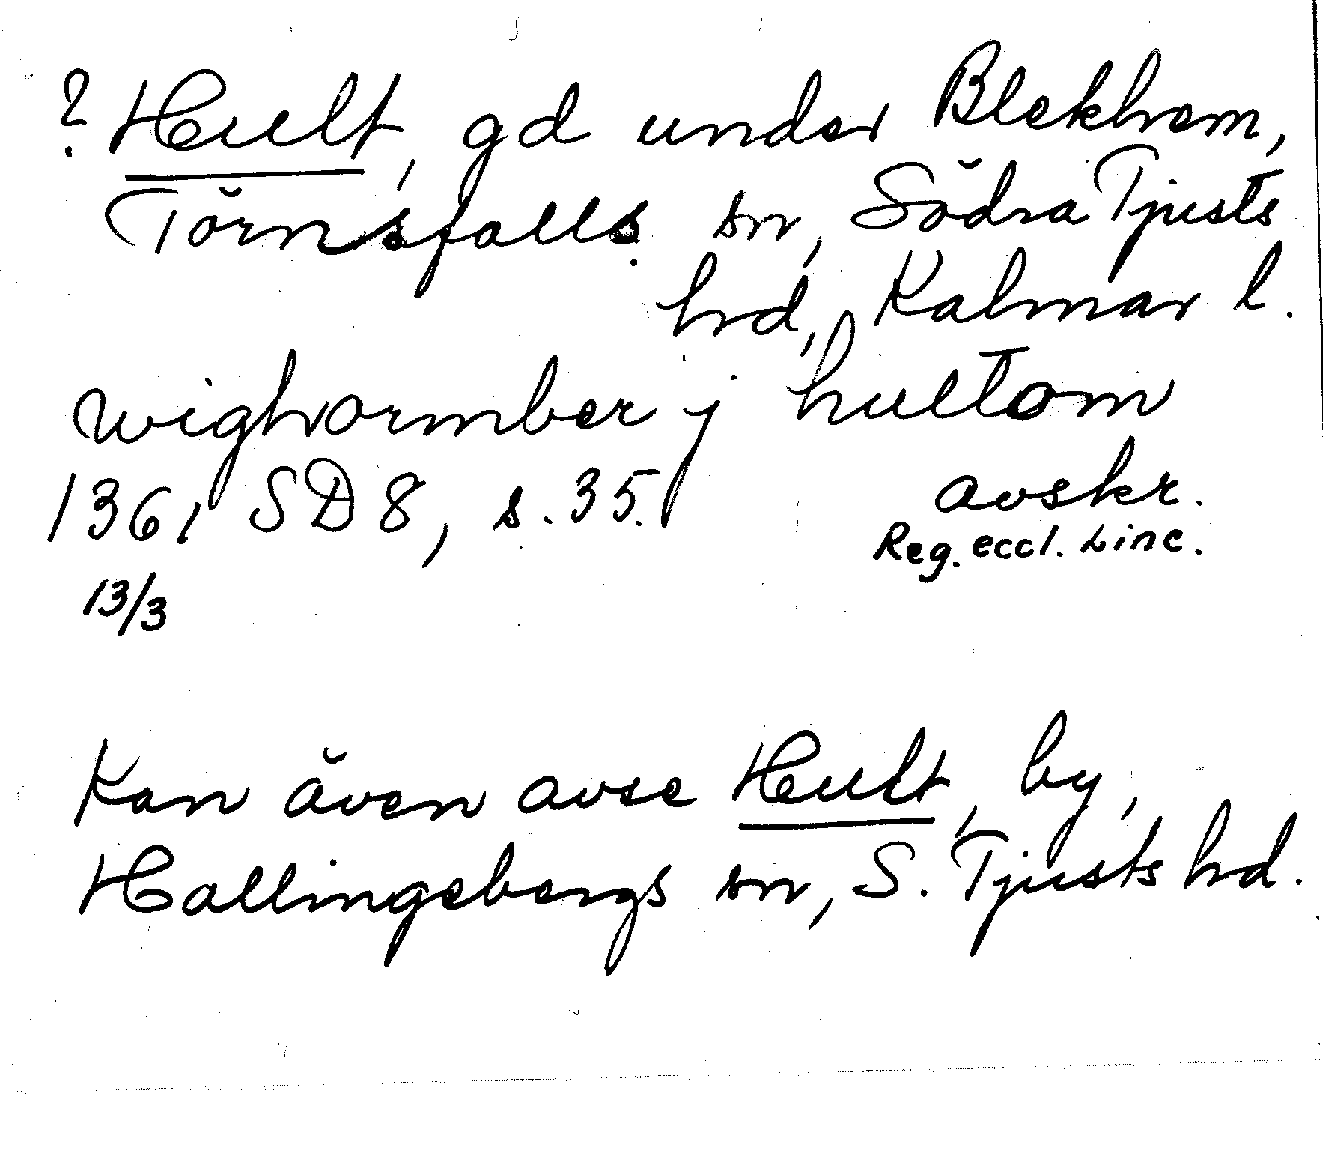 ? Hult, gd under Blekhem,
Törnsfalls sn, Södra Tjusts
hrd, Kalmar l.
wighvormber j hultom
1361 SD 8, s. 35. avskr.
Reg. eccl. Linc.
13/3
Kan även avse Hult, by,
Hallingebergs sn, S. Tjusts hrd.